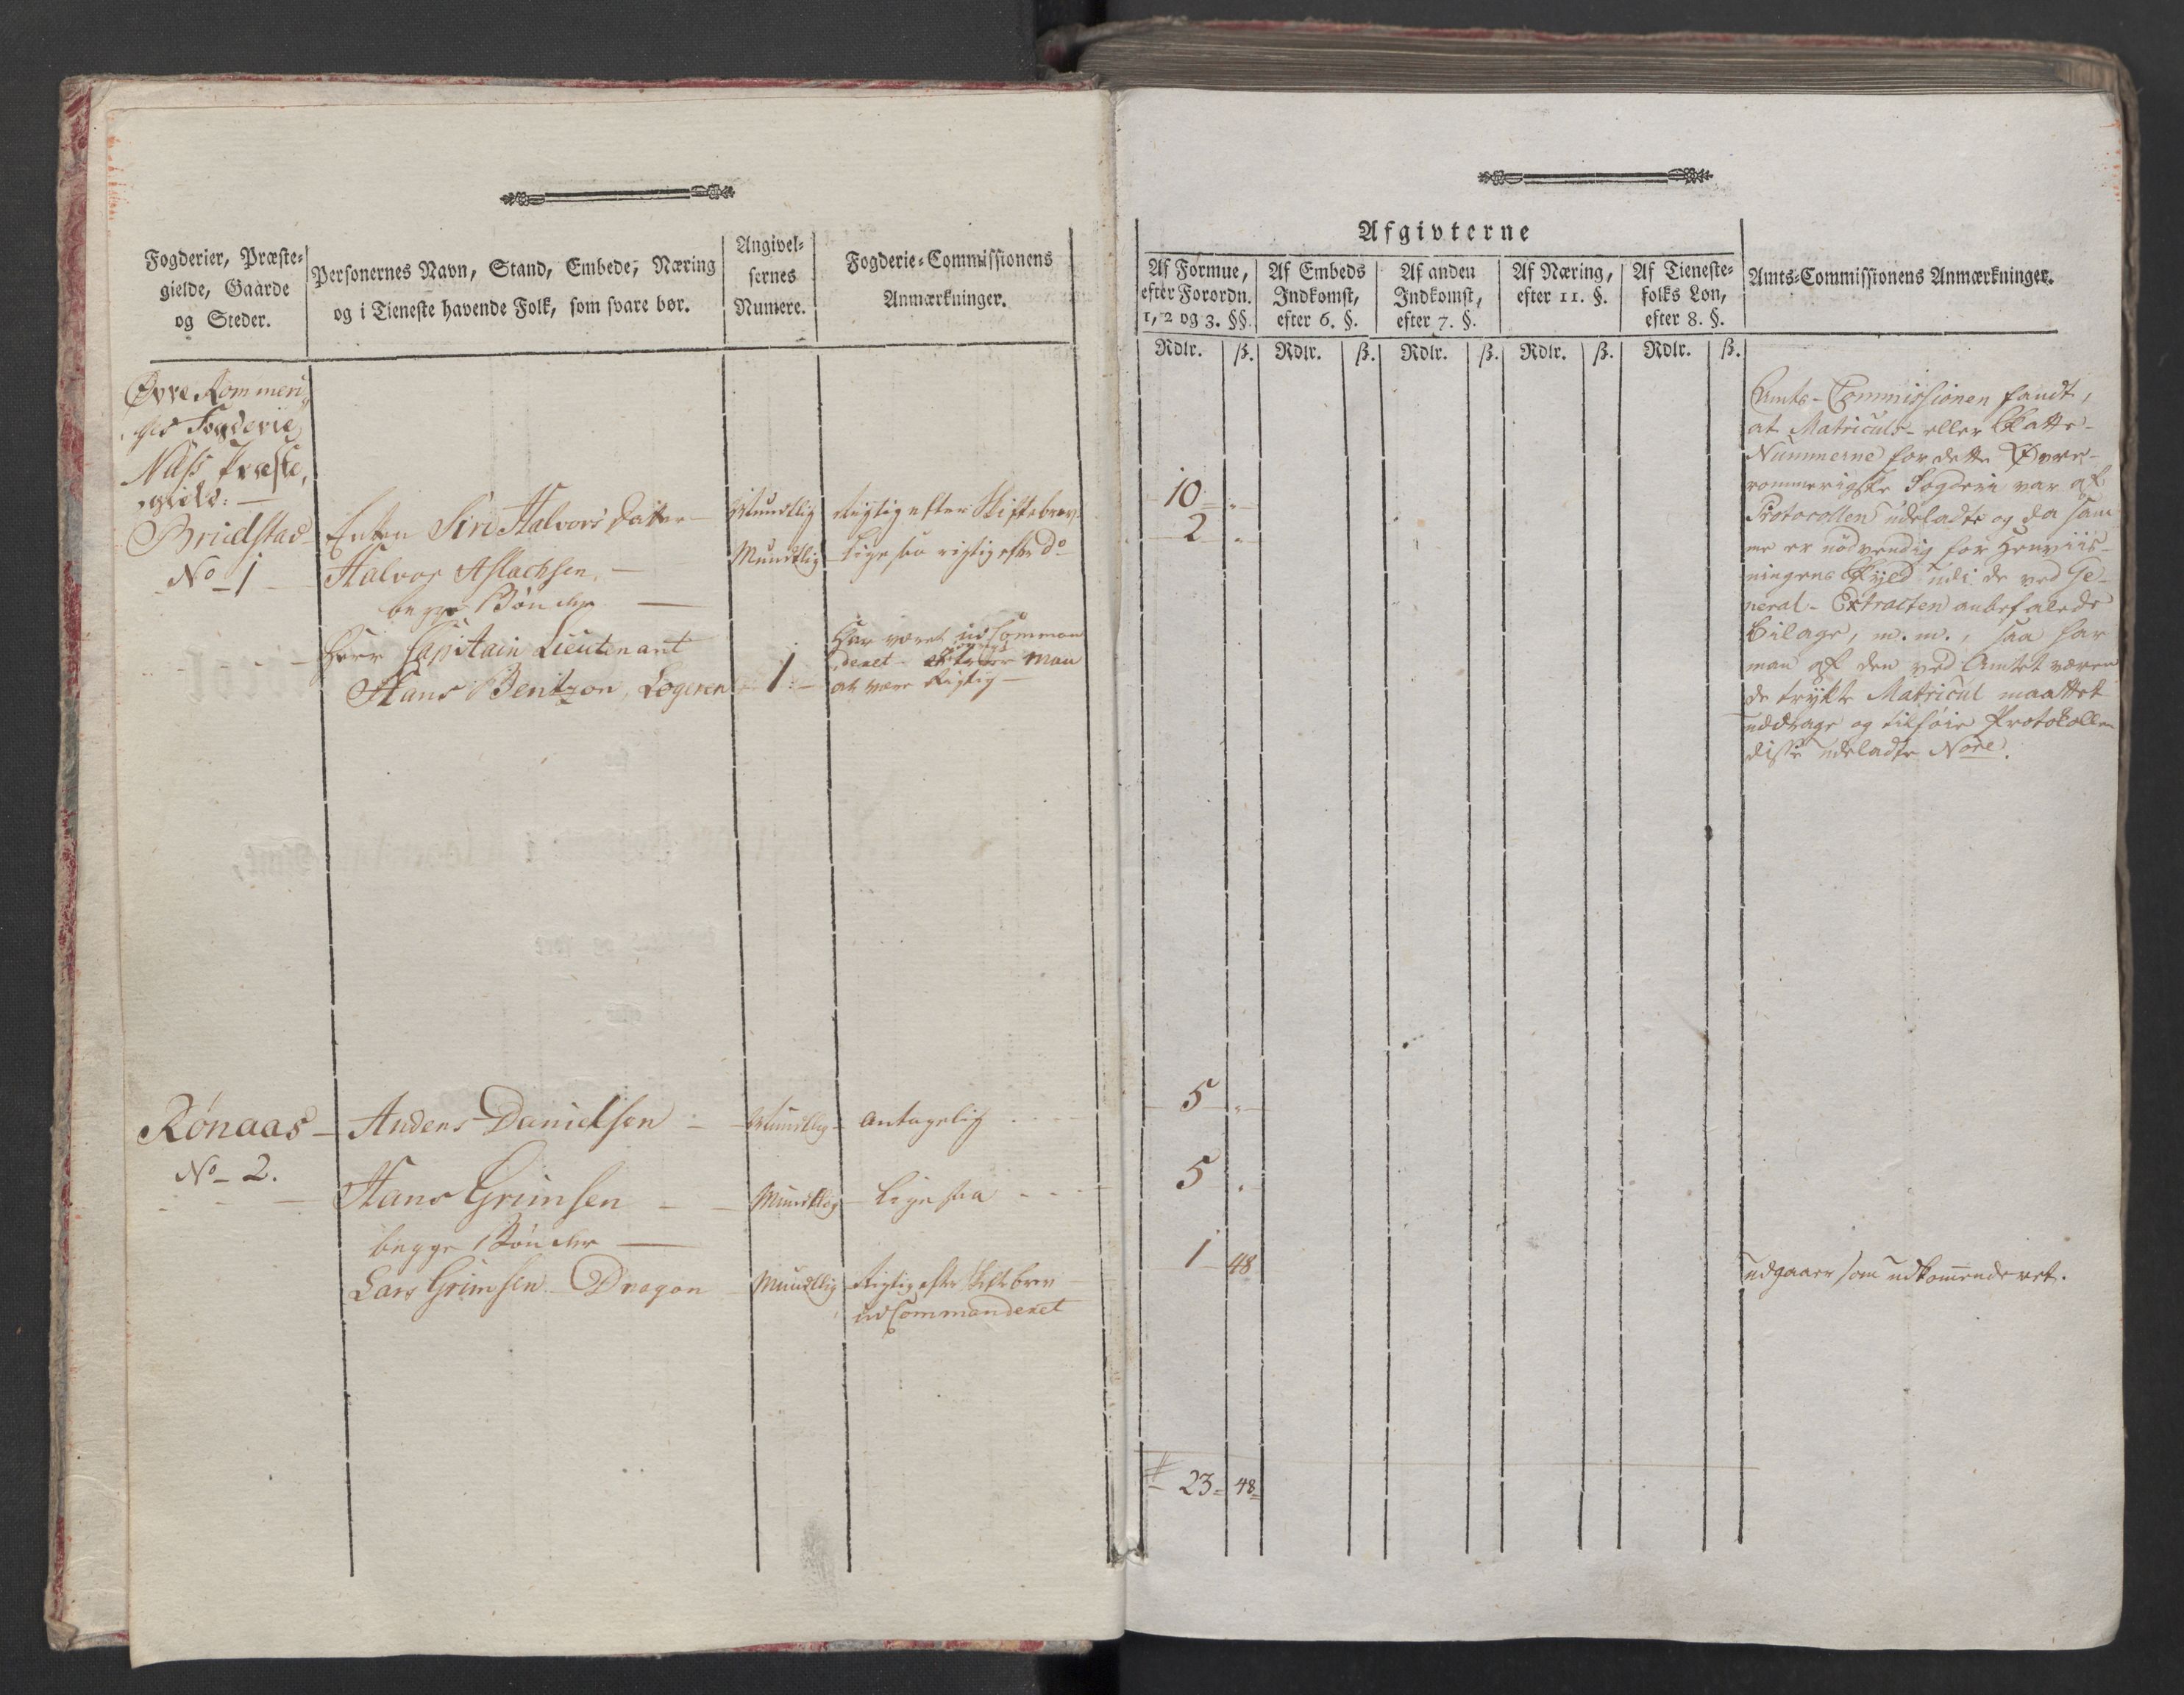 Fogderier, Præste-
gielde, Gaarde
og Steder.
Personernes Navn, Stand, Embede, Næring
og i Tieneste havende Folk, som svare bør.
Angivel-
sernes
Numere.
Fogderie-Commissionens
Anmærkninger.
Øvre Rommerig
ges Fogderie
Næss Præste,
gield: —
Brudstad
No 1
Enken Siri Halvors Datter —
Mundtlig
Rigtig efter Skiftebrev
Halvor Aslachsen, —
Mundtlig
Lige saa rigtig efter Do
begge Bønder —
Herr Capitain Lieutenant
Hans Bentzon, Logeren
1. —
Har været ud Comman
deret
Man
at være Rigtig —
Rønaas —
No — 2.
Anders Danielsen —
Mundtlig
Antagelig
Hans Grimsen — —
Mundtlig
Ligesaa
begge Bønder —
Lars Grimsen Dragon
Mundtlig
Rigtig efter Skiftebrev
ud Commanderet
Afgivterne
Af Formue,
efter Forordn.
1, 2 og 3. §§.
Af Embeds
Indkomst,
efter 6. §.
Af anden
Indkomst,
efter 7. §.
Af Næring,
efter 11. §.
Af Tieneste-
folks Løn,
efter 8. §.
Amts-Commissionens Anmærkninger.
Rdlr. ß. Rdlr. ß. Rdlr. ß. Rdlr. ß. Rdlr. ß.
10 "
2 "
5 "
5 "
1 48
23 48
Amts-Commissionen fandt,
at Matriculs- eller Skatte-
Nummerne for dette Øvre-
rommerigske Fogderi var af
Protocollen udeladte og da sam
me er nødvendig for Henviis-
ningens Skyld udi de ved Ge-
neral-Extracten anbefalede
Bilage, m. m., saa har
man af den ved Amtet væren
de trykte Matricul maattet
uddrage og tilføie Protokollen
disse udeladte Nore.
udgaaer som udkommenderet.